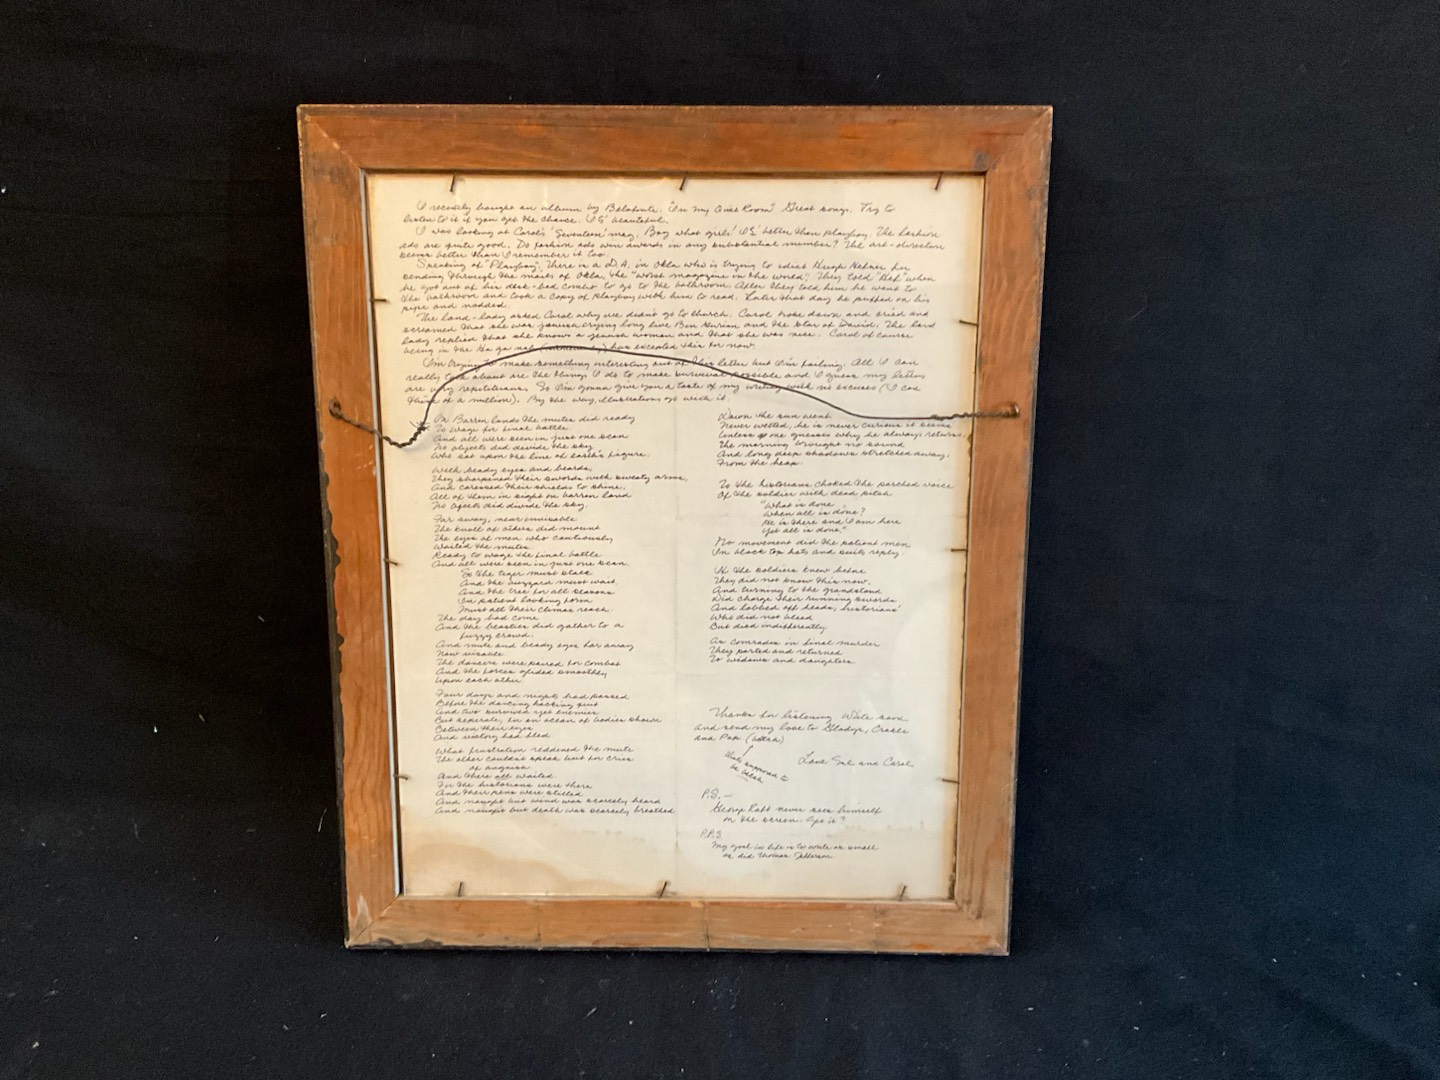 I recently bought an album by Belafonte. "In My Quiet Room" Great songs. Try to
listen to it if you get the chance. It's beautiful.
I was looking at Carol's 'Seventeen' mag. Boy what girls! It's better than playboy. The fashion
ads are quite good. Do fashion ads win awards in any substantial number? The art-direction
seems better than I remember it too.
Speaking of "Playboy", there is a D.A. in Okla who is trying to idict Hugh Hefner for
sending through the mails of Okla, the "worst magazine in the world." They told "Hef" when
he got out of his desk-bed combo to go to the bathroom. After they told him he went to
the bathroom and took a copy of Playboy with him to read. Later that day he puffed on his
pipe and nodded.
The land-lady asked Carol why we didn't go to church. Carol broke down and cried and
screamed that she was jewish, crying long live Ben Gurion and the Star of David. The land
lady replied that she knows a jewish woman and that she was nice. Carol of course
being in the has excepted this for now.
I'm trying to make something interesting out of this letter but I'm failing. All I can
really talk about are the things I do to make survival possible and I guess my letters
are very repetitious. So I'm gonna give you a taste of my writing with no excuses (I can
think of a million). By the way, illustrations go with it.
On Barren lands the mutes did ready
To wage for final battle.
And all were seen in just one scan
No objects did divide the sky
Who sat upon the line of earth's figure.
With beady eyes and beards,
They sharpened their swords with sweaty arms,
And caressed their shields to shine.
All of them in sight on barren land
No objects did divide the sky.
Far away, near invisable
The knoll of others did mount
The eyes of men who cautiously
Waited the mutes
Ready to wage the final battle
And all were seen in just one scan.
So the tiger must stalk
And the buzzard must wait,
And the tree for all seasons
In patient looking form
Must all their climax reach.
The day had come
And the beasties did gather to a
fuzzy crowd.
And mute and beady eyes far away
Now visable
The dancers were paired for combat
And the forces glided smoothly
Upon each other.
Four days and nights had passed
Before the dancing hacking quit
And two survived yet enemies
But seperate, for an ocean of bodies shown
Between their eyes
And victory had fled
What frustration reddened the mute
The other couldn't speak but for cries
of anguish
And there all waited
For the historians were there
And their pens were stilled
And nought but wind was scarcely heard
And nought but death was scarcely breathed
Down the sun went
Never vetted, he is never curious it seems
Unless one guesses why he always returns.
The morning brought no sound
And long deep shadows stretched away.
From the heap.
To the historians choked the parched voice
Of the soldier with dead pitch
"What is done
When all is done?
He is there and I am here
Yet all is done."
No movement did the patient men
In black top hats and suits reply.
If the soldiers knew before
They did not know this now.
And turning to the grandstand
Did charge their running swords
And lobbed off heads, historians'
Who did not bleed
But died indifferently
As comrades in final murder
They parted and returned
To widows and daughters
Thanks for listening. Write soon
and send my love to Gladys,
and Pop
that's supposed to
be
Love Sal and Carol
P.S.—
George Raft never sees himself
on the screen. Get it?
P.P.S.
My goal in life is to write as small
as did Thomas Jefferson